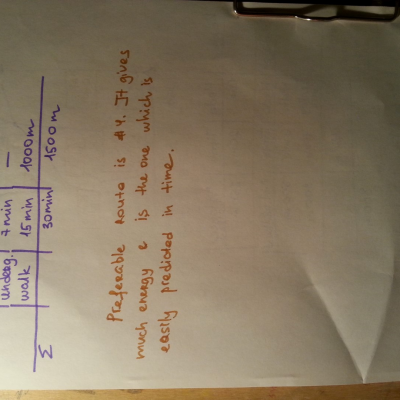 underg. 7 min —
walk 15 min 1000m
Σ 30min 1500m
Preferable route is #4. It gives
much energy & is the one which is
easily predicted in time.